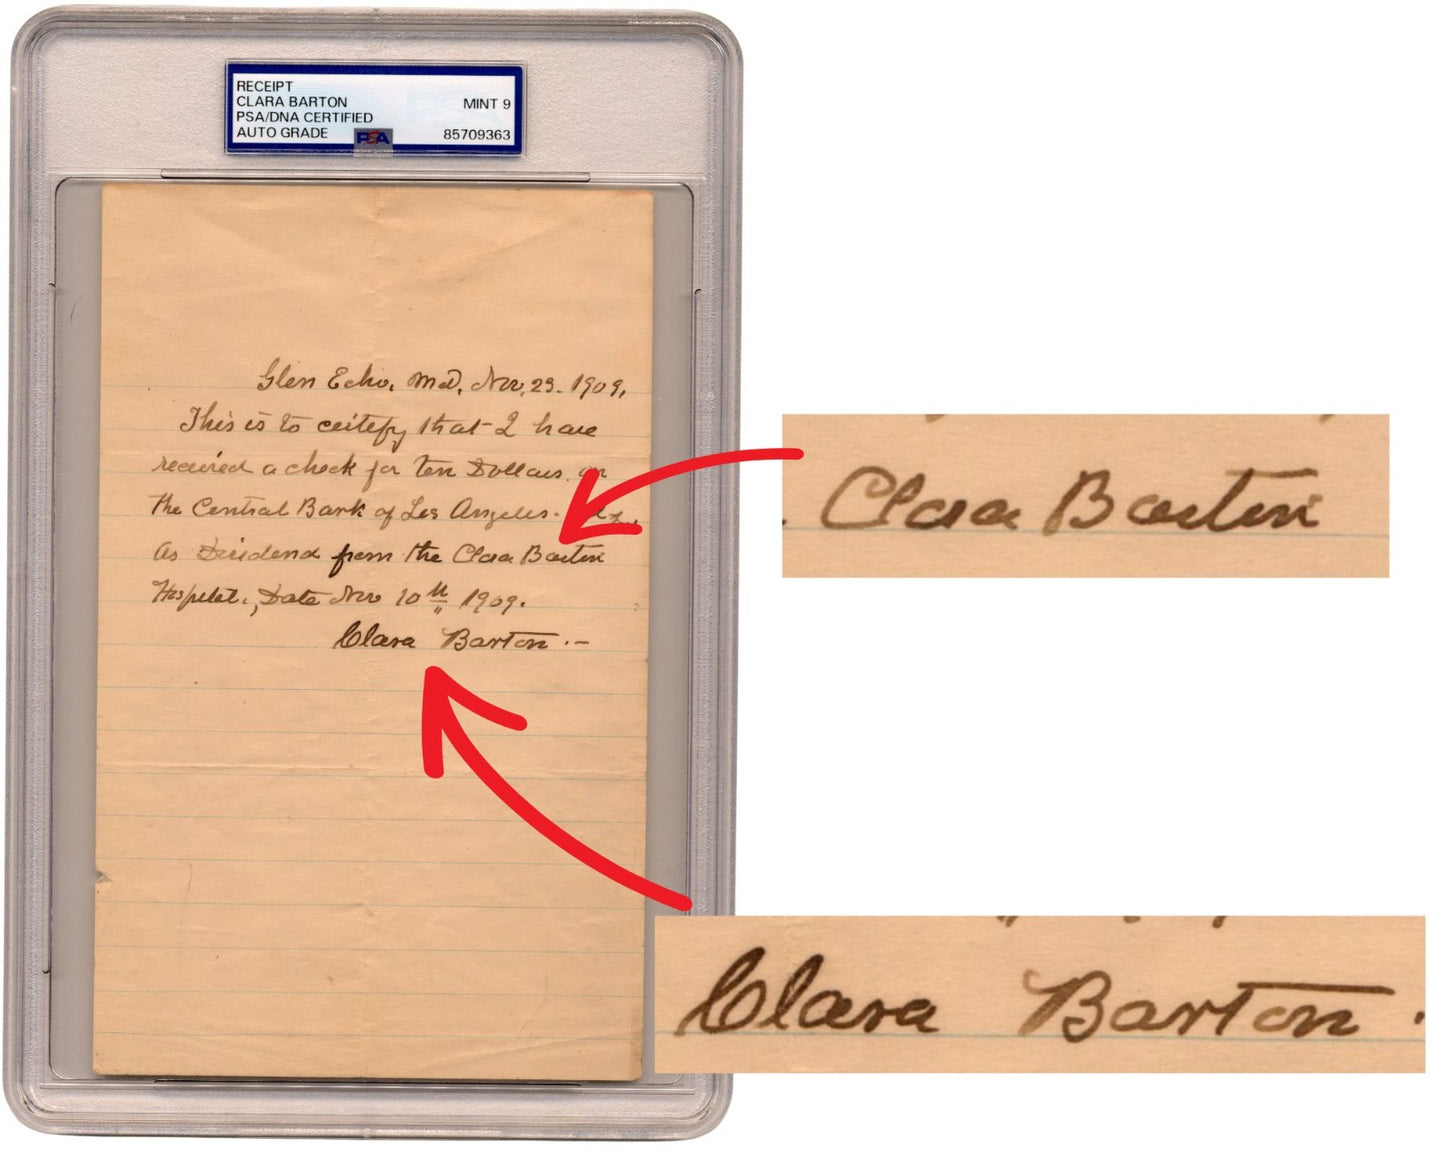 RECEIPT
CLARA BARTON MINT 9
PSA/DNA CERTIFIED
AUTO GRADE PSA 85709363
Glen Echo, Md, Nov, 23. 1909,
This is to certify that I have
received a check for ten Dollars. on
the Central Bank of Los Angeles.
As Dividend from the Clara Barton
Hospital., Date Nov 10th 1909.
Clara Barton.-
Clara Barton
Clara Barton.